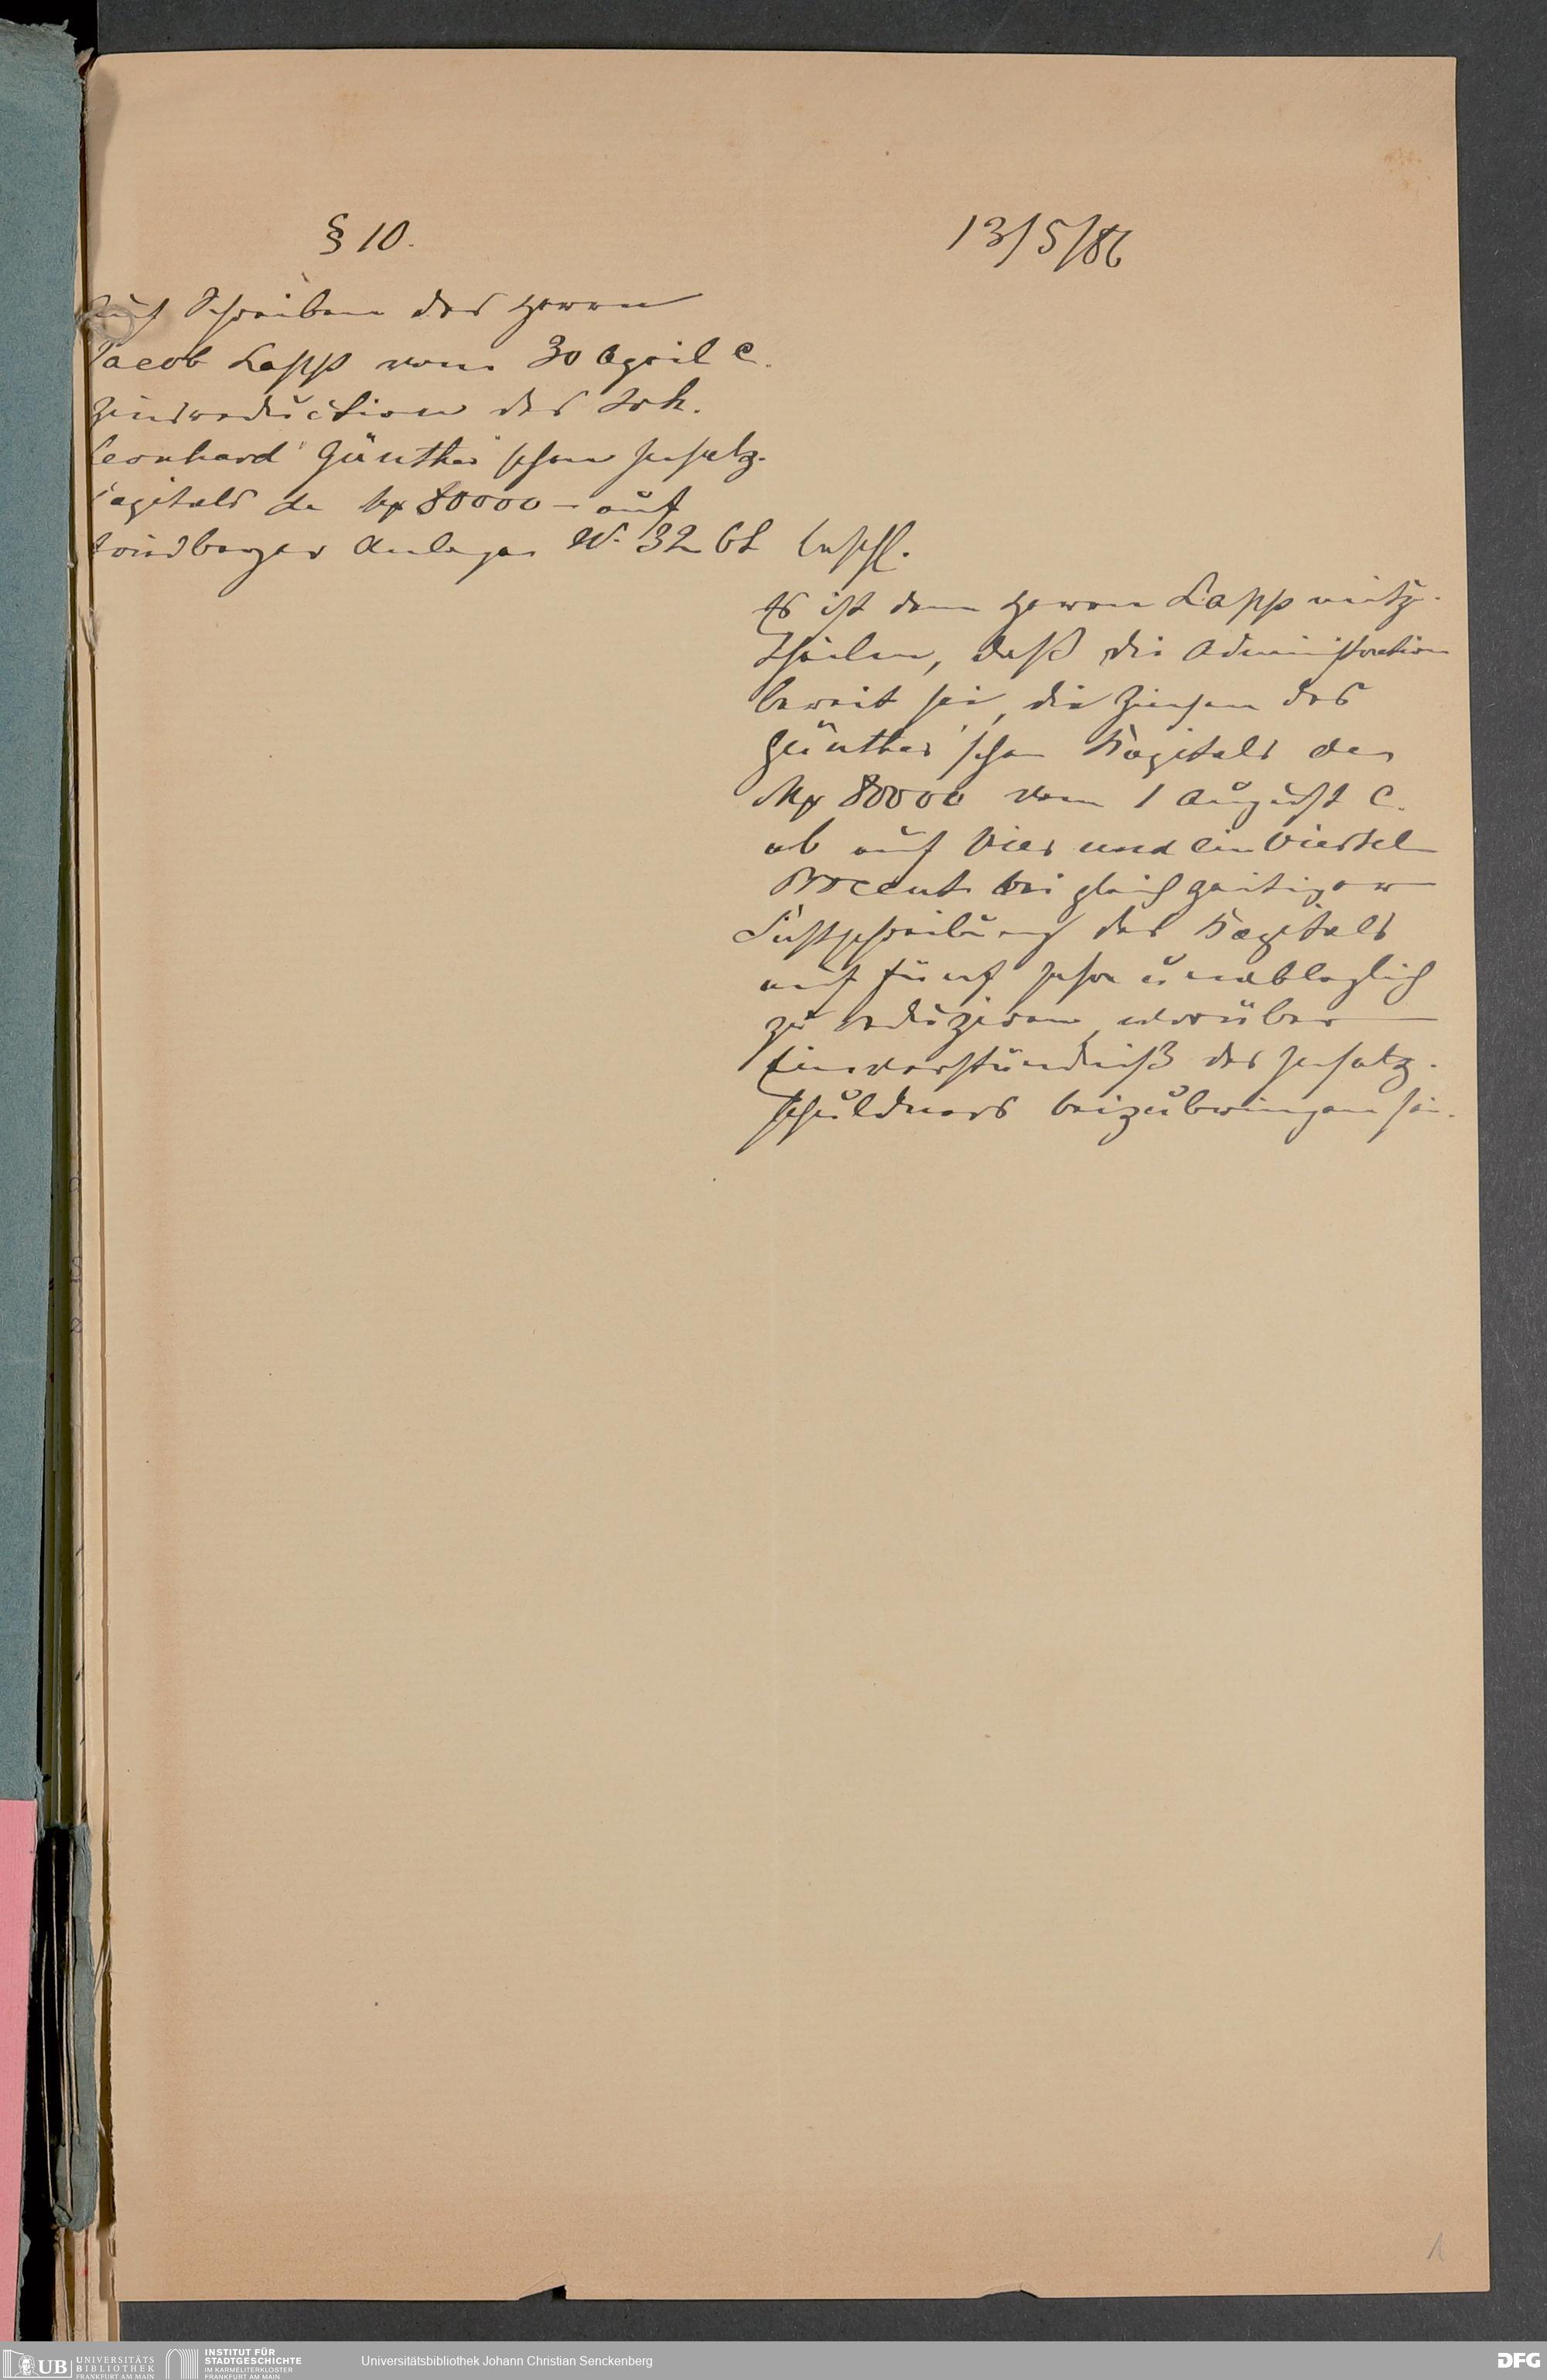 § 10.
13/5/86
Auf Schreiben des Herrn
Jacob Lapp vom 30 April c.
Zinsreduction des Joh.
Leonhard Günther'schen Insatz-
capitals de Mk 80000 – auf
Friedberger Anlage No 32 bt
beschl.
Es ist dem Herrn Lapp mitzu-
theilen, daß die Administration
bereit sei, die Zinsen des
Günther'schen Kapitals der
Mk 80000 vom 1 August c.
ab auf Vier und ein Viertel
Procent bei gleichzeitiger
Festschreibung des Kapitals
auf fünf Jahre unableglich
zu reduziren, worüber
Einverständniß des Insatz-
schuldners beizubringen sei.
1
UB UNIVERSITÄTS
BIBLIOTHEK
FRANKFURT AM MAIN
INSTITUT FÜR
STADTGESCHICHTE
IM KARMELITERKLOSTER
FRANKFURT AM MAIN
Universitätsbibliothek Johann Christian Senckenberg
DFG